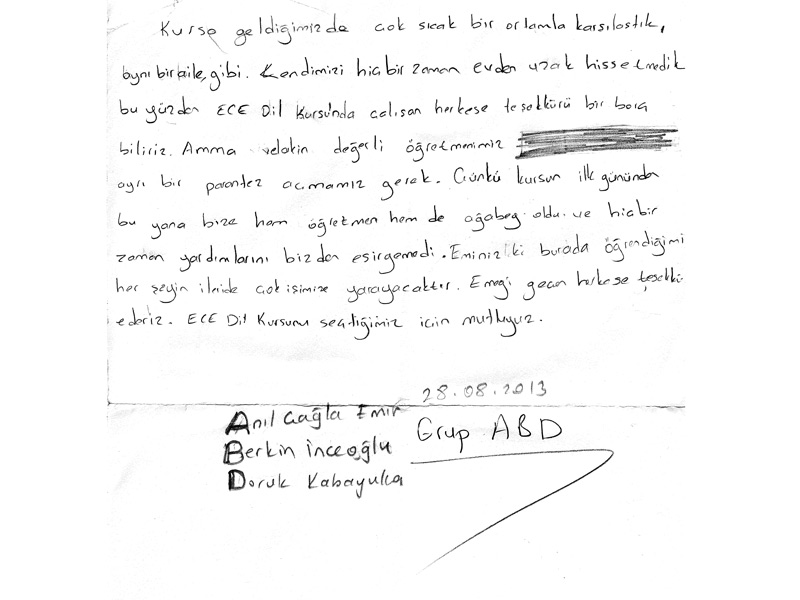 Kursa geldiğimizde çok sıcak bir ortamla karşılaştık,
aynı bir aile gibi. Kendimizi hiçbir zaman evden uzak hissetmedik
bu yüzden ECE Dil Kursunda çalışan herkese teşekkürü bir borç
biliriz. Amma velakin değerli öğretmenimiz
ayrı bir parantez açmamız gerek. Çünkü kursun ilk gününden
bu yana bize hem öğretmen hem de ağabey oldu ve hiçbir
zaman yardımlarını bizden esirgemedi. Eminiz ki burada öğrendiğimi
her şeyin ileride çok işimize yarayacaktır. Emeği geçen herkese teşekkü
ederiz. ECE Dil Kursunu seçtiğimiz için mutluyuz.
28.08.2013
Anıl Çağla Emir
Grup ABD
Berkin İnceoğlu
Doruk Kabayuka